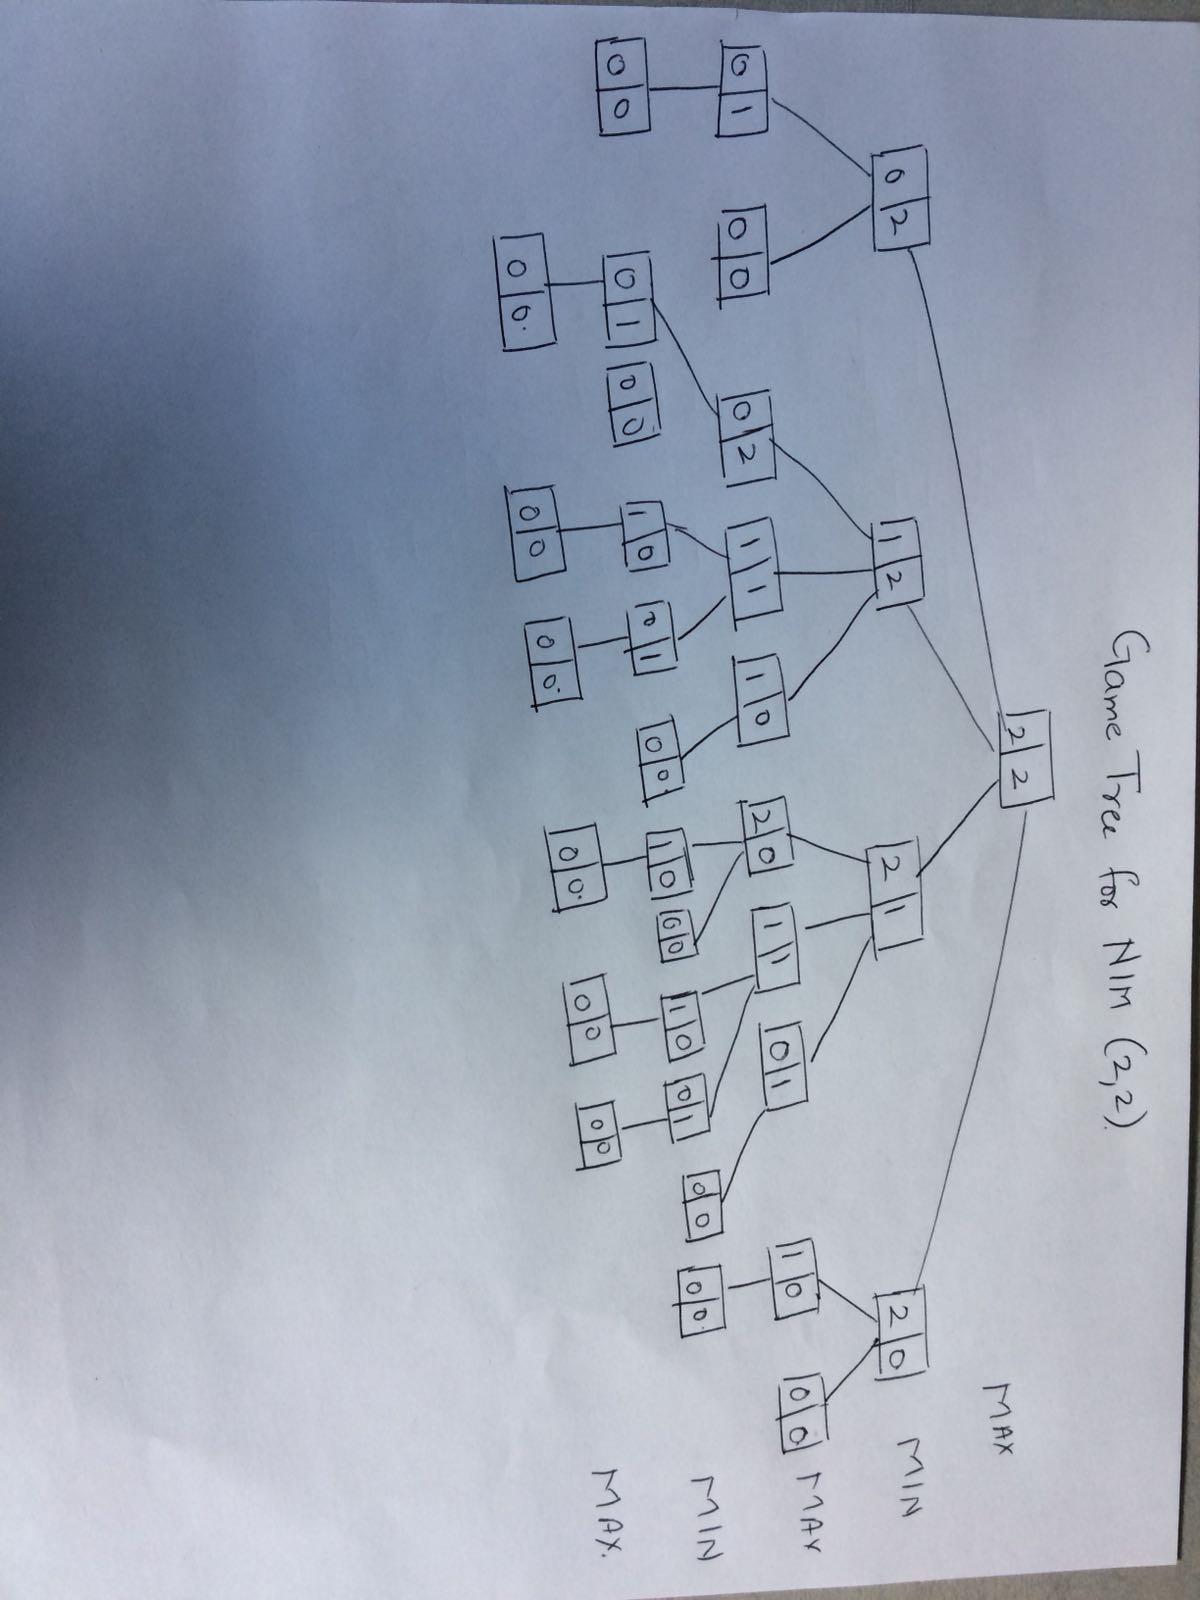 Game Tree for NIM (2,2).
2 2
MAX
0 2 1 2 2 1 2 0
MIN
0 1 0 0 0 2 1 1 1 0 2 0 1 1 0 1 1 0 0 0
MAX
0 0 0 1 0 0 1 0 0 1 0 0 1 0 0 0 1 0 0 1 0 0 0 0
MIN
0 0 0 0 0 0 0 0 0 0 0 0
MAX.